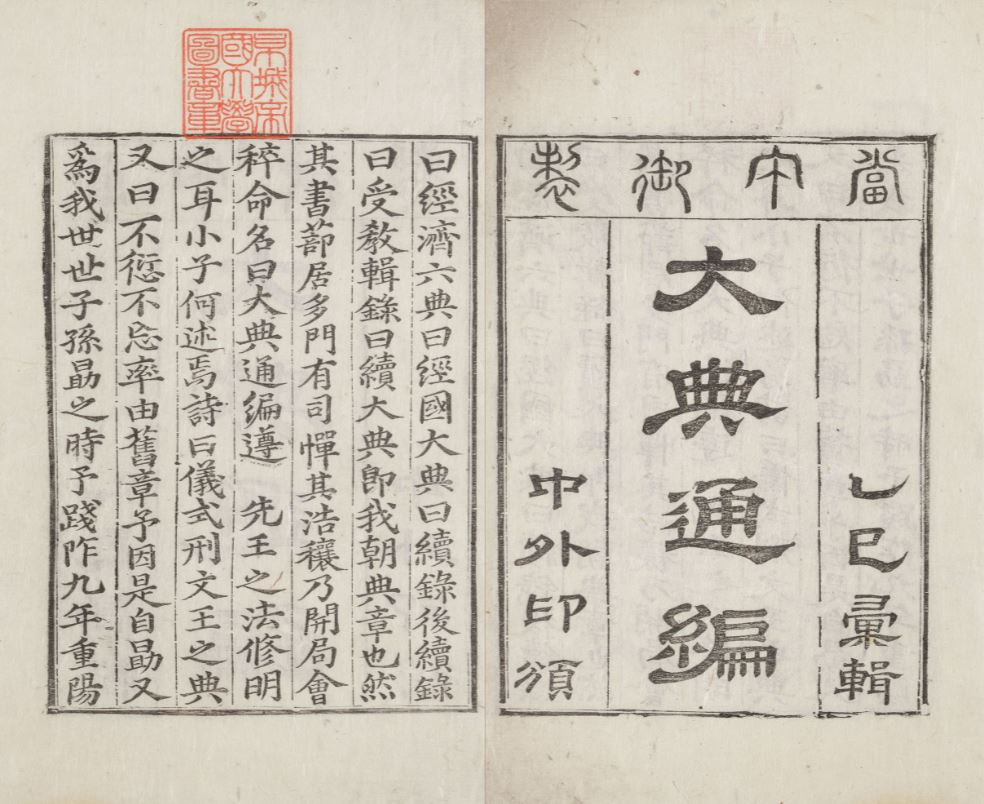 當宁御製
乙巳彙輯
大典通編
中外印頒
京城帝國大學圖書章
曰經濟六典曰經國大典曰續錄後續錄
曰受敎輯錄曰續大典卽我朝典章也然
其書蔀居多門有司憚其浩穰乃開局會
稡命名曰大典通編遵　先王之法修明
之耳小子何述焉詩曰儀式刑文王之典
又曰不愆不忘率由舊章予因是自勗又
爲我世世子孫勗之時予踐阼九年重陽